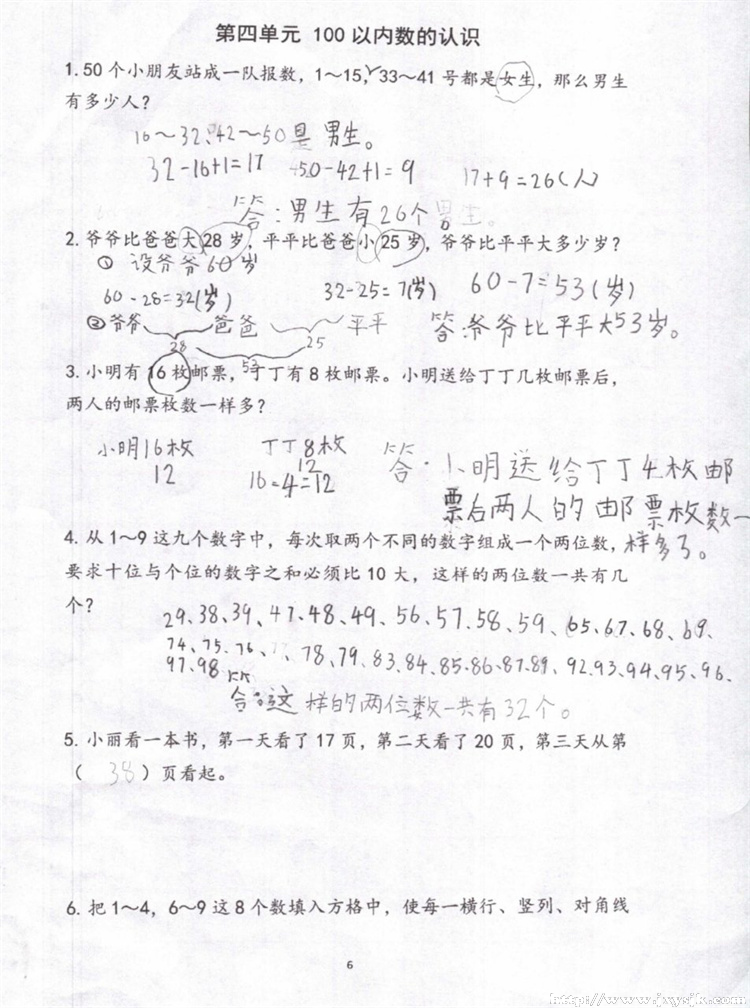 第四单元 100以内数的认识
1. 50个小朋友站成一队报数，1～15，33～41号都是女生，那么男生
有多少人？
16～32、42～50是男生。
32-16+1=17 50-42+1=9 17+9=26(人)
答：男生有26个男生。
2. 爷爷比爸爸大28岁，平平比爸爸小25岁，爷爷比平平大多少岁？
① 设爷爷60岁
60-28=32(岁) 32-25=7(岁) 60-7=53(岁)
② 爷爷 爸爸 平平 答：爷爷比平平大53岁。
28 25
53
3. 小明有16枚邮票，丁丁有8枚邮票。小明送给丁丁几枚邮票后，
两人的邮票枚数一样多？
小明16枚 丁丁8枚
12 12
16-4=12
答：小明送给丁丁4枚邮
票后两人的邮票枚数一
样多了。
4. 从1～9这九个数字中，每次取两个不同的数字组成一个两位数，
要求十位与个位的数字之和必须比10大，这样的两位数一共有几
个？
29、38、39、47、48、49、56、57、58、59、65、67、68、69、
74、75、76、78、79、83、84、85、86、87、89、92、93、94、95、96、
97、98
答：这样的两位数一共有32个。
5. 小丽看一本书，第一天看了17页，第二天看了20页，第三天从第
（ 38 ）页看起。
6. 把1～4，6～9这8个数填入方格中，使每一横行、竖列、对角线
6
http://www.jxysjk.com